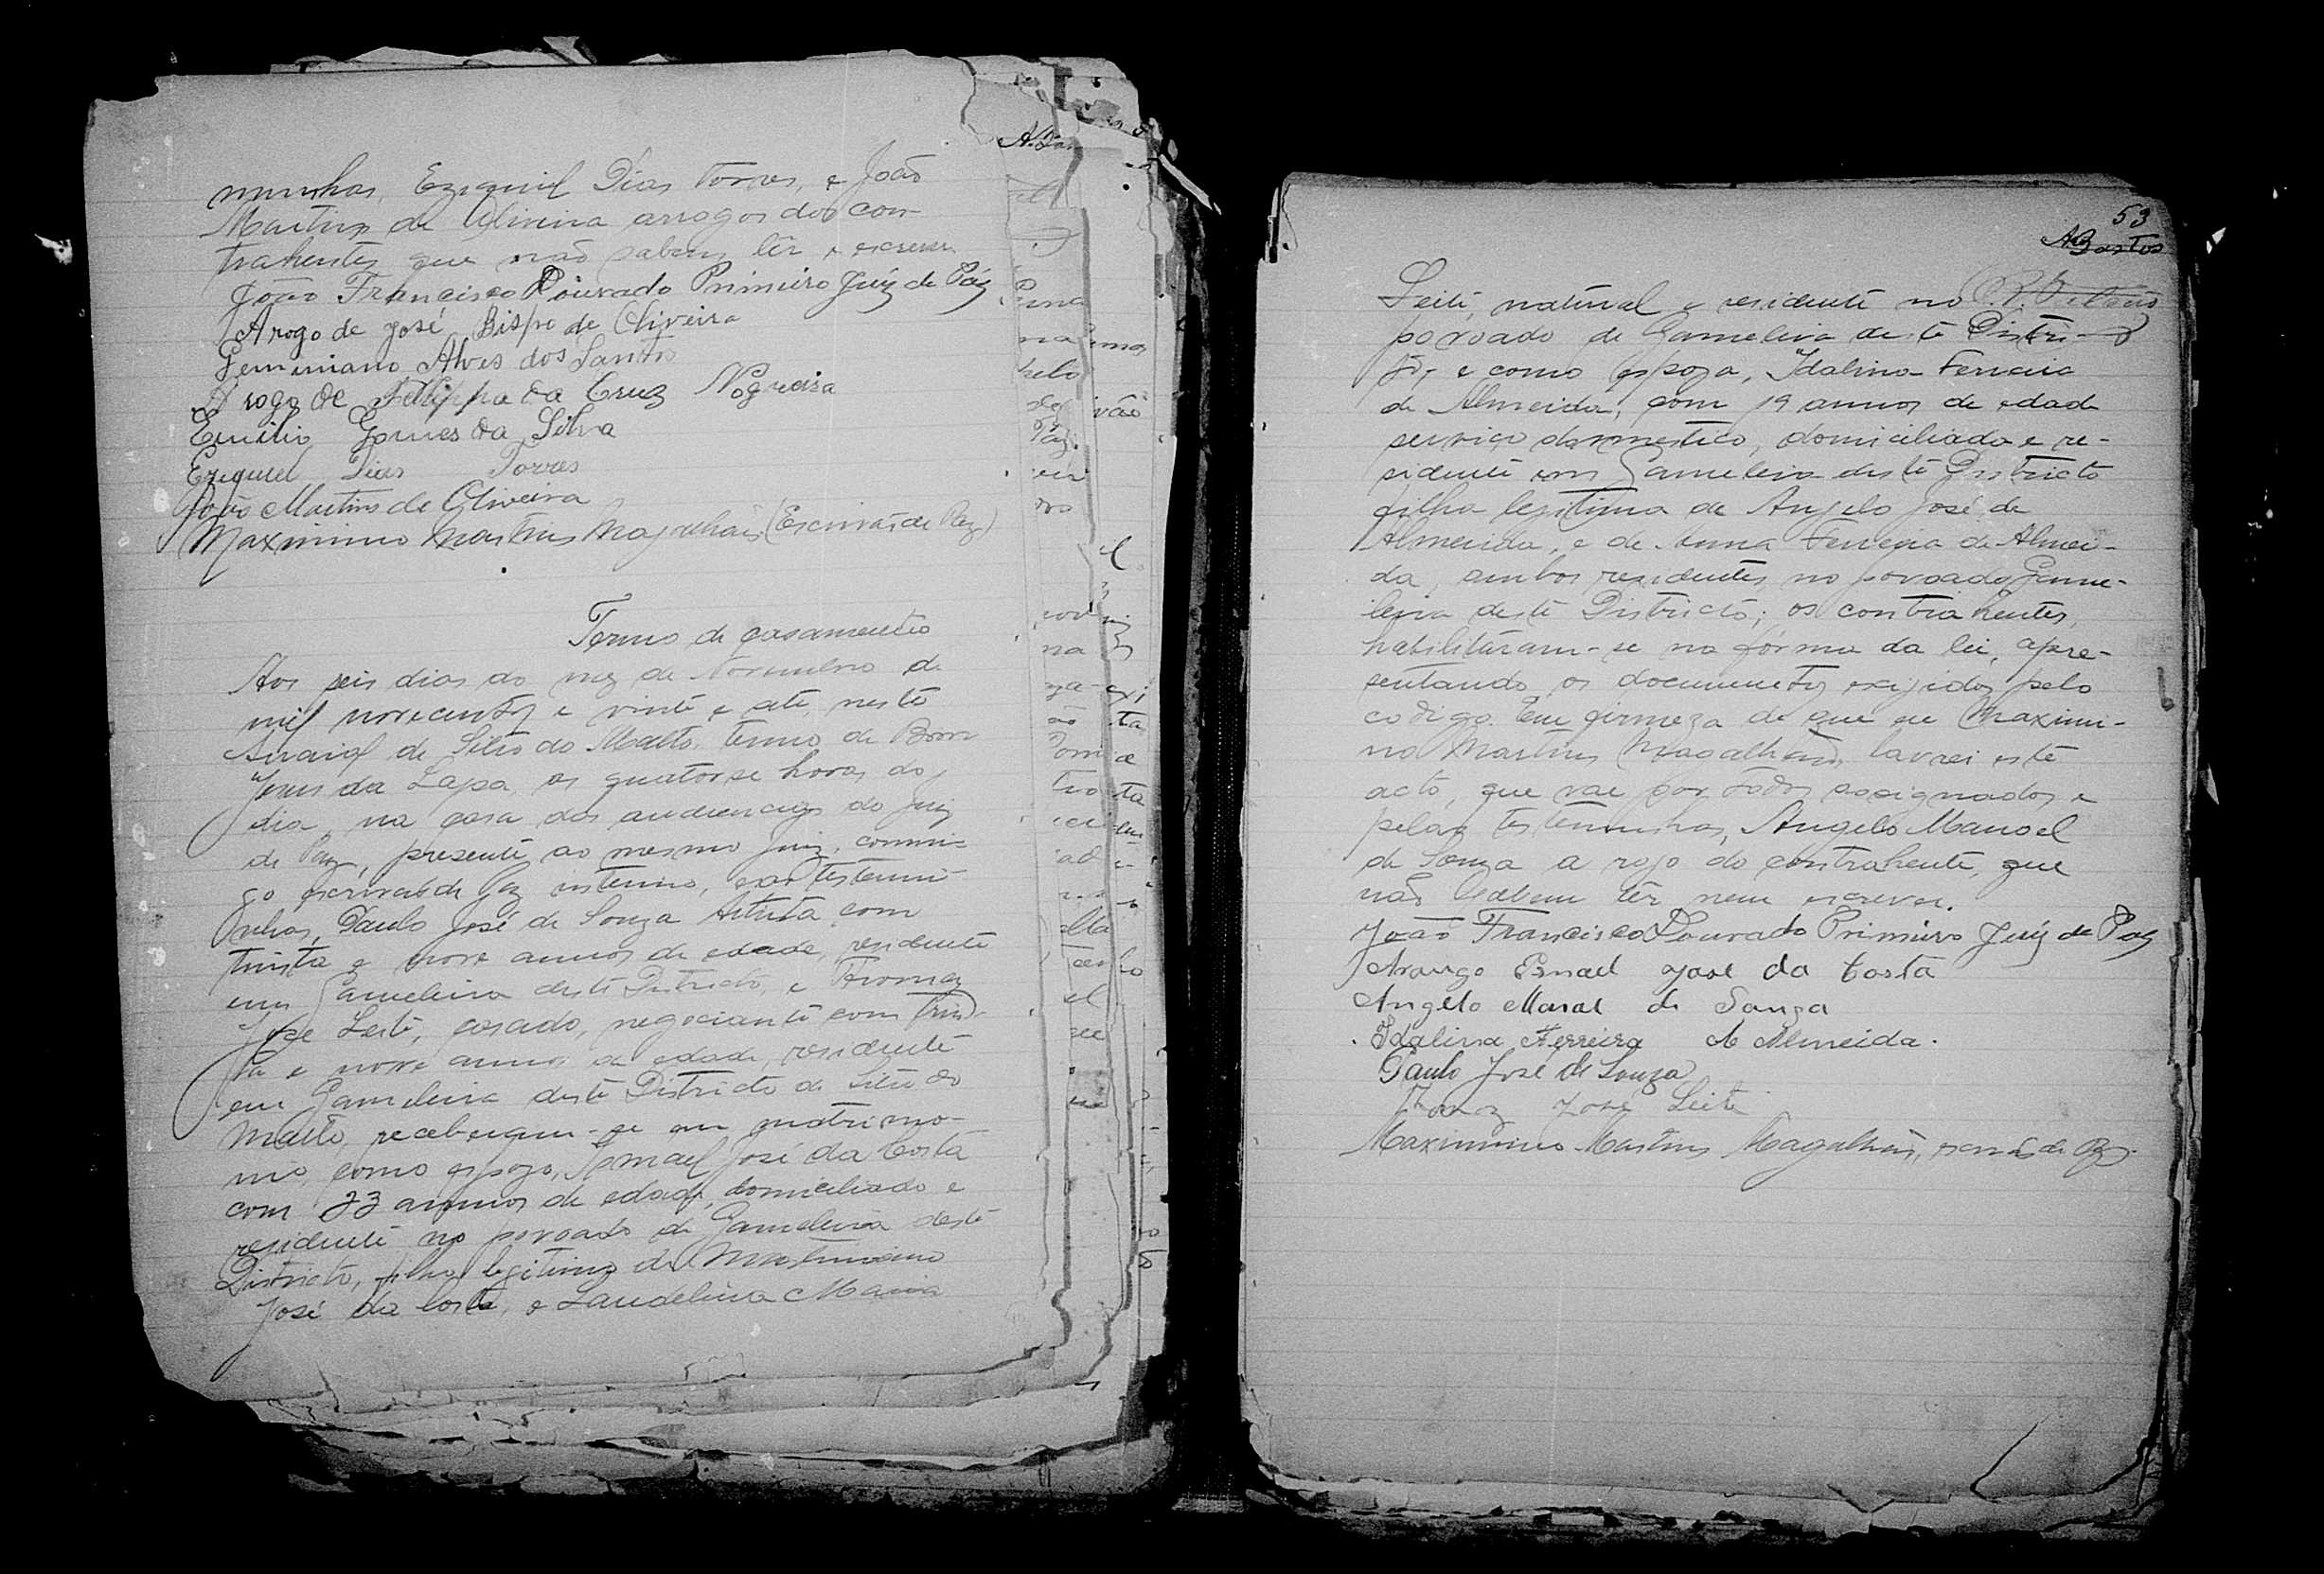 munhas, Ezequiel Dias Torres, e João
Martins de Oliveira arrogos dos con-
trahentes que não sabem lêr e escrever.
João Francisco Dourado Primeiro Juiz de Páz
Arogo de José Bispo de Oliveira
Geminiano Alves dos Santos
Arogo de Felippa da Cruz Nogueira
Emilio Gomes da Silva
Ezequiel Dias Torres
João Martins de Oliveira
Maximino Martins Magalhães (Escrivão de Paz)
Termo de casamento
Aos seis dias do mez de Novembro de
mil novecentos e vinte e sete, neste
Arraial de Sitio do Matto, termo de Bom
Jesus da Lapa, as quatorse horas do
dia, na casa das audiencias do Juiz
de Paz, presente ao mesmo Juiz, commi-
go Escrivão de Paz interino, e as testemu-
nhas, Paulo José de Souza Artista com
trinta e nove annos de edade, residente
em Gameleira deste Districto, e Thomaz
José Leite, casado, negociante com trin-
ta e nove annos de edade, residente
em Gameleira deste Districto de Sitio do
Matto, receberam-se em matrimo-
nio, como espozo, Ismael José da Costa
com 23 annos de edade, domiciliado e
residente no povoado de Gameleira deste
Districto, filho legitimo de Martiniano
José da Costa, e Laudelina Maria
53
A Bastos
Leite, natural e residente no
povoado de Gameleira deste Distri-
to, e como espoza, Idalina Ferreira
de Almeida, com 19 annos de edade
serviço domestico, domiciliada e re-
sidente em Gameleira deste Districto
filha legitima de Angelo José de
Almeida, e de Anna Ferreira de Almei-
da, ambos residentes no povoado Game-
leira deste Districto; os contrahentes,
habilitaram-se na fórma da lei, apre-
sentando os documentos exijidos pelo
codigo. Em firmeza de que eu Maximi-
no Martins Magalhães, lavrei este
acto, que vae por todos assignados e
pelas testemunhas, Angelo Manoel
de Souza a rojo do contrahente, que
não sabem lêr nem escrever.
João Francisco Dourado Primeiro Juiz de Paz
Arougo Ismael José da Costa
Angelo Manoel de Souza
Idalina Ferreira de Almeida.
Paulo José de Souza
Thomaz José Leite
Maximino Martins Magalhães, escrivão de Paz.